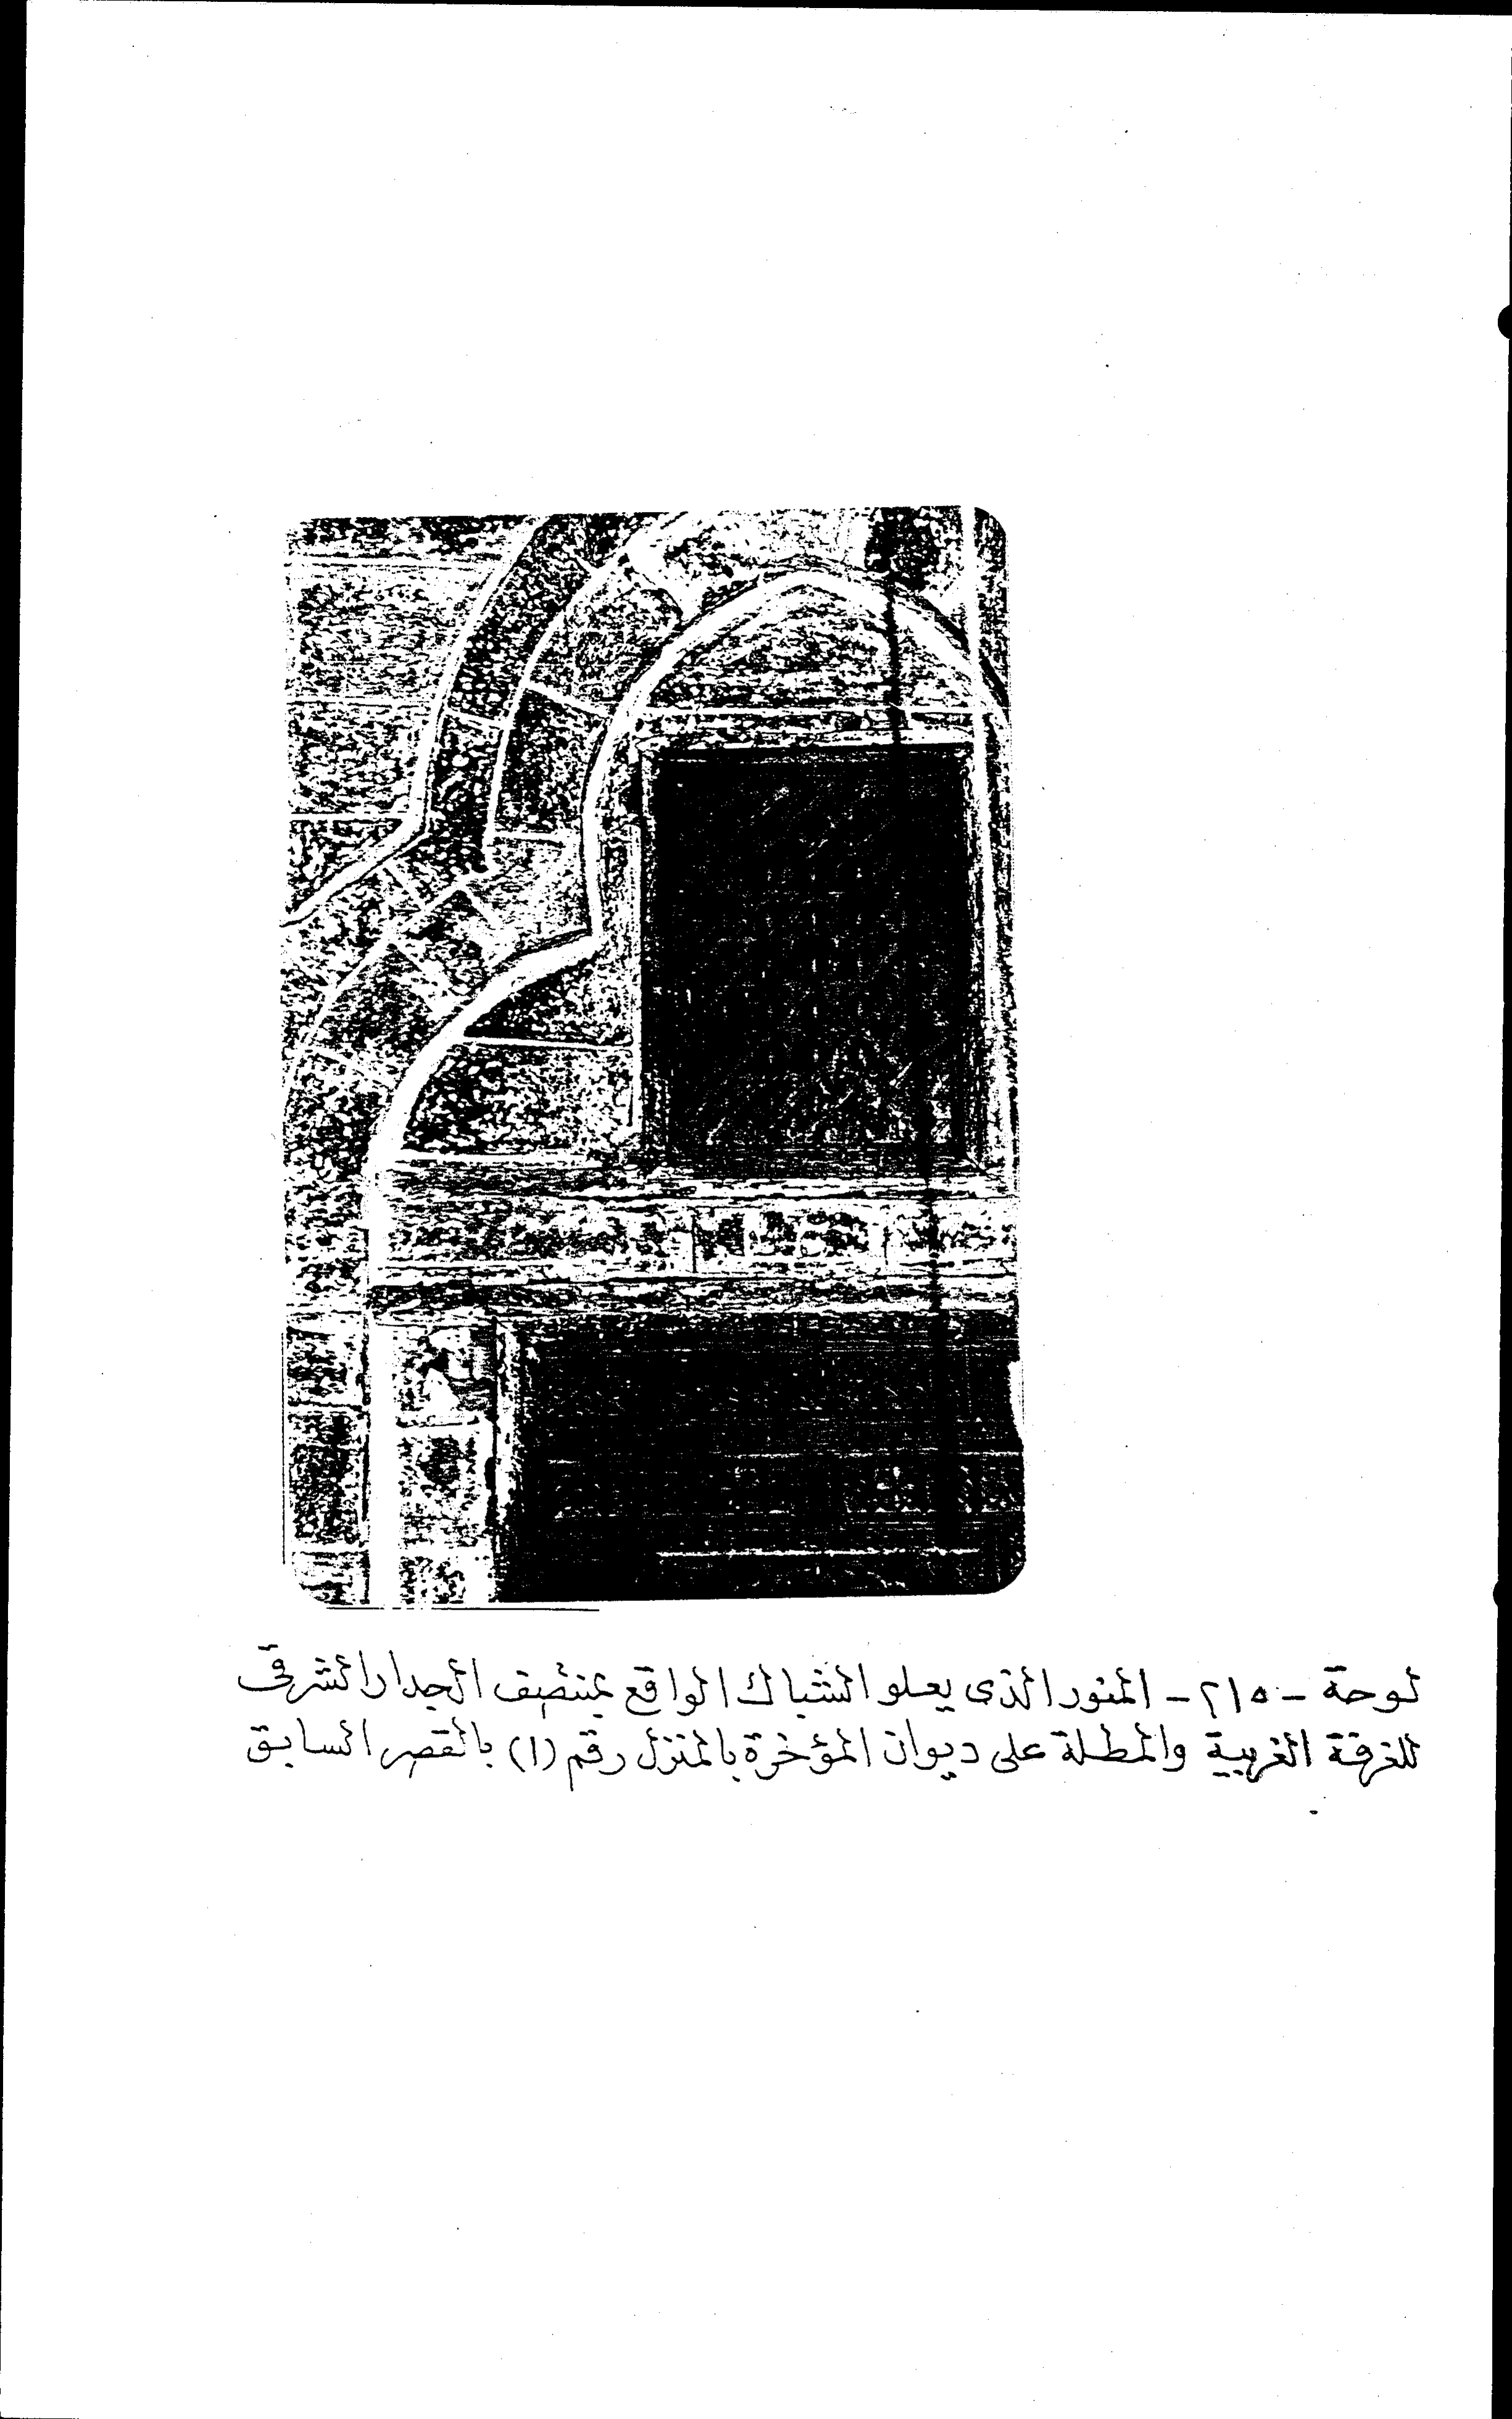 لوحة - ٢١٥ - المنور الذى يعلو الشباك الواقع بمنتصف الجدار الشرقى
للغرفة الغربية والمطلة على ديوان المؤخرة بالمنزل رقم (١) بالقصر السابق